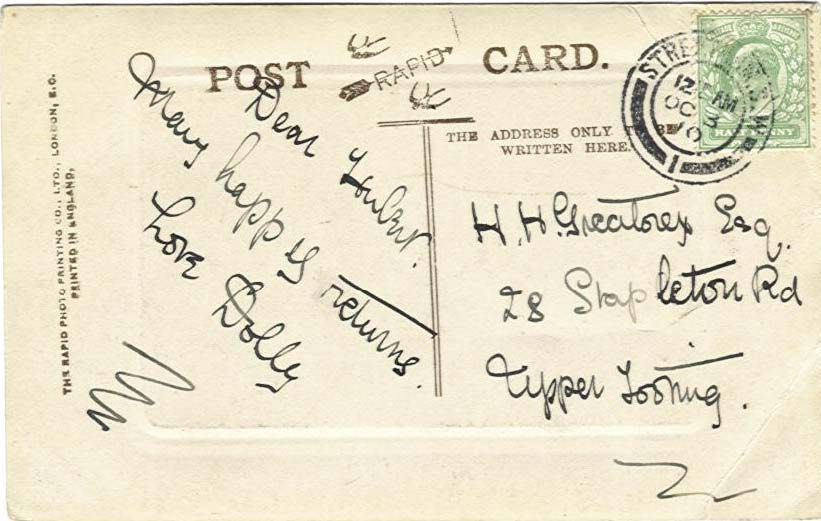 POST CARD.
RAPID
THE ADDRESS ONLY
WRITTEN HERE.
Dear Hubert.
Many happy returns.
Love Dolly
H. H. Greatorex Esq.
28 Stapleton Rd
Upper Tooting.
12 AM
OC 3
HALF PENNY
THE RAPID PHOTO PRINTING CO., LTD., LONDON, E.C.
PRINTED IN ENGLAND.